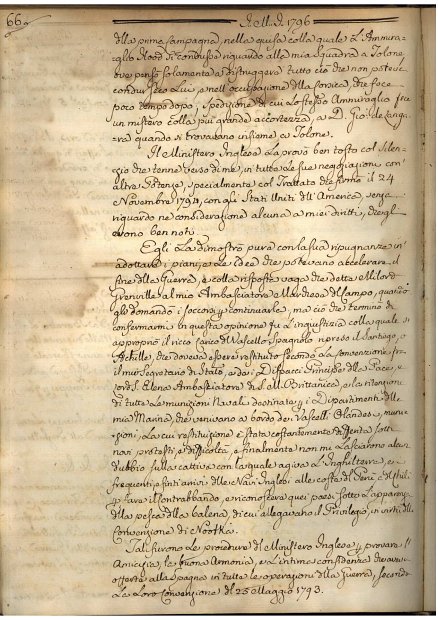 66.
A. D. 1796
della prima campagna, nella guisa colla quale l'Ammira-
glio Hood si condusse riguardo alla mia Squadra a Tolone
ove pensò solamente a distruggere tutto ciò che non poteva
condur seco Lui, e nell'occupazione della Corsica, che fece
poco tempo dopo, Spedizione di cui lo stesso Ammiraglio fece
un mistero colla più grande accortezza, a D. Gio: de Langa-
ra quando si trovavano insieme a Tolone.
Il Ministero Inglese la provò ben tosto col Silen-
zio che tenne verso di me, in tutte le sue negoziazioni con
altre Potenze, specialmente col Trattato che firmò il 24
Novembre 1794, con gli Stati Uniti dell'America, senza
riguardo ne considerazione alcuna a miei diritti, che gli
erano ben noti.
Egli la dimostrò pure con la sua ripugnanza in
adottare i piani, e le idee che potevano accellerare il
fine della Guerra, e colla risposta vaga che dette Milord
Grenville al mio Ambasciatore Marchese del Campo, quando
gli domandò i soccorsi per continuarla, ma ciò che terminò di
confermarmi in questa opinione fu l'ingiustizia colla quale si
appropriò il ricco carico del Vascello Spagnolo ripreso il Santiago, o
Achille, che doveva essere restituito secondo la convenzione fra
il mio Segretario di Stato, e dei Dispacci Principe della Pace, e
Lord S. Elena Ambasciatore di S. M. Brittanica, e la ritenzione
di tutte le munizioni Navali destinate per i Dipartimenti della
mia Marina, che venivano a bordo dei Vascelli Olandesi, muni-
zioni, la cui restituzione è stata costantemente differita sotto
vari pretesti, e difficoltà, e finalmente non mi lasciarono alcun
dubbio sulla cattiva con la quale agiva l'Inghilterra, e i
frequenti, e finti arrivi delle Navi Inglesi alle coste del Perù, e del Chilì
per fare il contrabbando, e riconoscere quei paesi sotto l'apparenza
della pesca della balena, di cui allegavano il Privilegio, in virtù della
Convenzione di Nootka.
Tali furono le procedure del Ministero Inglese per provare l'
Amicizia, la buona Armonia, e l'intima confidenza che aveva
offerta alla Spagna in tutte le operazioni della Guerra, secondo
la loro Convenzione del 25 Maggio 1793.